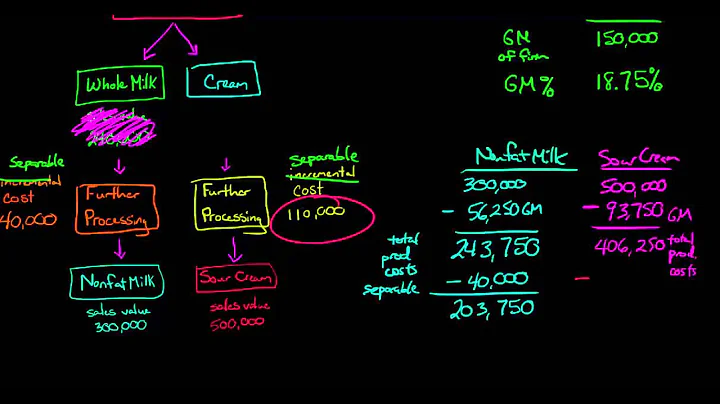 GM
of firm
150,000
GM%
18.75%
Whole Milk
Cream
Separable
incremental
cost
40,000
Further
Processing
Further
Processing
separable
incremental
cost
110,000
Nonfat Milk
sales value
300,000
Sour Cream
sales value
500,000
Nonfat Milk
300,000
- 56,250 GM
total
prod
costs
243,750
separable
- 40,000
203,750
Sour Cream
500,000
- 93,750 GM
406,250
total
prod.
costs
-